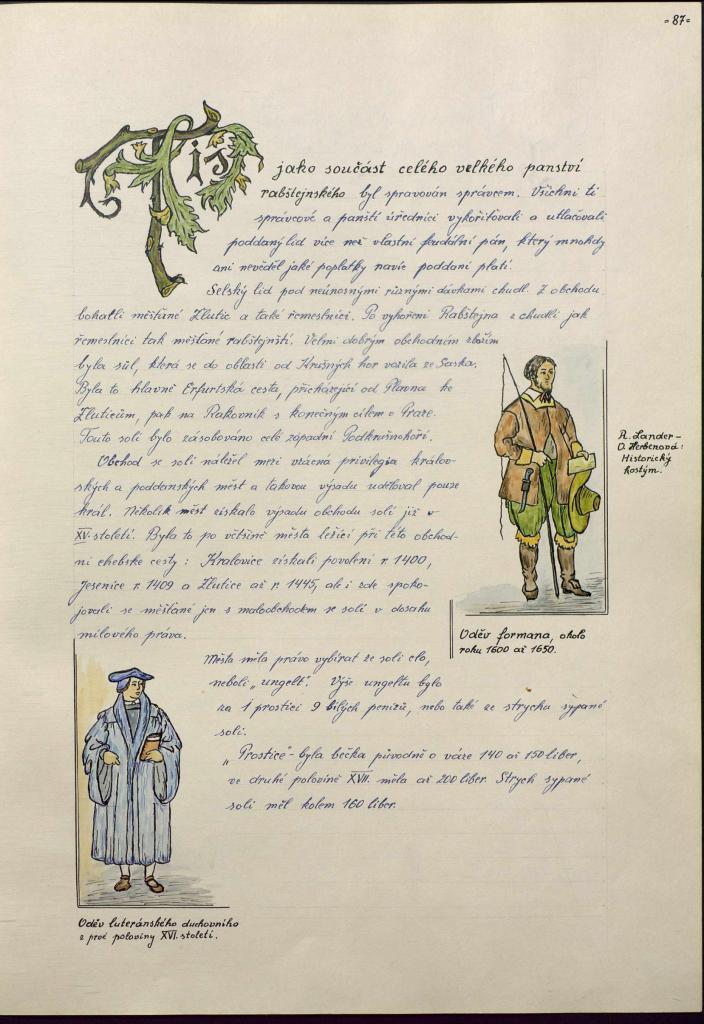 - 87 -
Tis
jako součást celého velkého panství
rabštejnského byl spravován správcem. Všichni ti
správcové a panští úředníci vykořisťovali a utlačovali
poddaný lid více než vlastní feudální pán, který mnohdy
ani nevěděl jaké poplatky navíc poddaní platí.
Selský lid pod neúnosnými různými dávkami chudl. Z obchodu
bohatli měšťané Žlutic a také řemeslníci. Po vyhoření Rabštejna zchudli jak
řemeslníci tak měšťané rabštejnští. Velmi dobrým obchodním zbožím
byla sůl, která se do oblasti od Krušných hor vozila ze Saska.
Byla to hlavně Erfurtská cesta, přicházející od Plavna ke
Žluticům, pak na Rakovník s konečným cílem v Praze.
Touto solí bylo zásobováno celé západní Podkrušnohoří.
Obchod se solí náležel mezi vzácná privilegia královských
ských a poddanských měst a takovou výsadu uděloval pouze
král. Několik měst získalo výsadu obchodu solí již v
XV. století. Byla to po většině města ležící při této obchod-
ní chebské cesty: Kralovice získali povolení r. 1400,
Jesenice r. 1409 a Žlutice až r. 1445, ale i zde spoko-
jovali se měšťané jen s maloobchodem se solí v dosahu
mílového práva.
R. Lander -
O. Herbenová:
Historický
kostým.
Oděv formana, okolo
roku 1600 až 1650.
Města měla právo vybírat ze soli clo,
neboli „ungelt". Výše ungeltu bylo
za 1 prostici 9 bílých penízů, nebo také ze strychu sypané
soli.
„Prostice" - byla bečka původně o váze 140 až 150 liber,
ve druhé polovině XVII. měla až 200 liber. Strych sypané
soli měl kolem 160 liber.
Oděv luteránského duchovního
z prvé poloviny XVI. století.